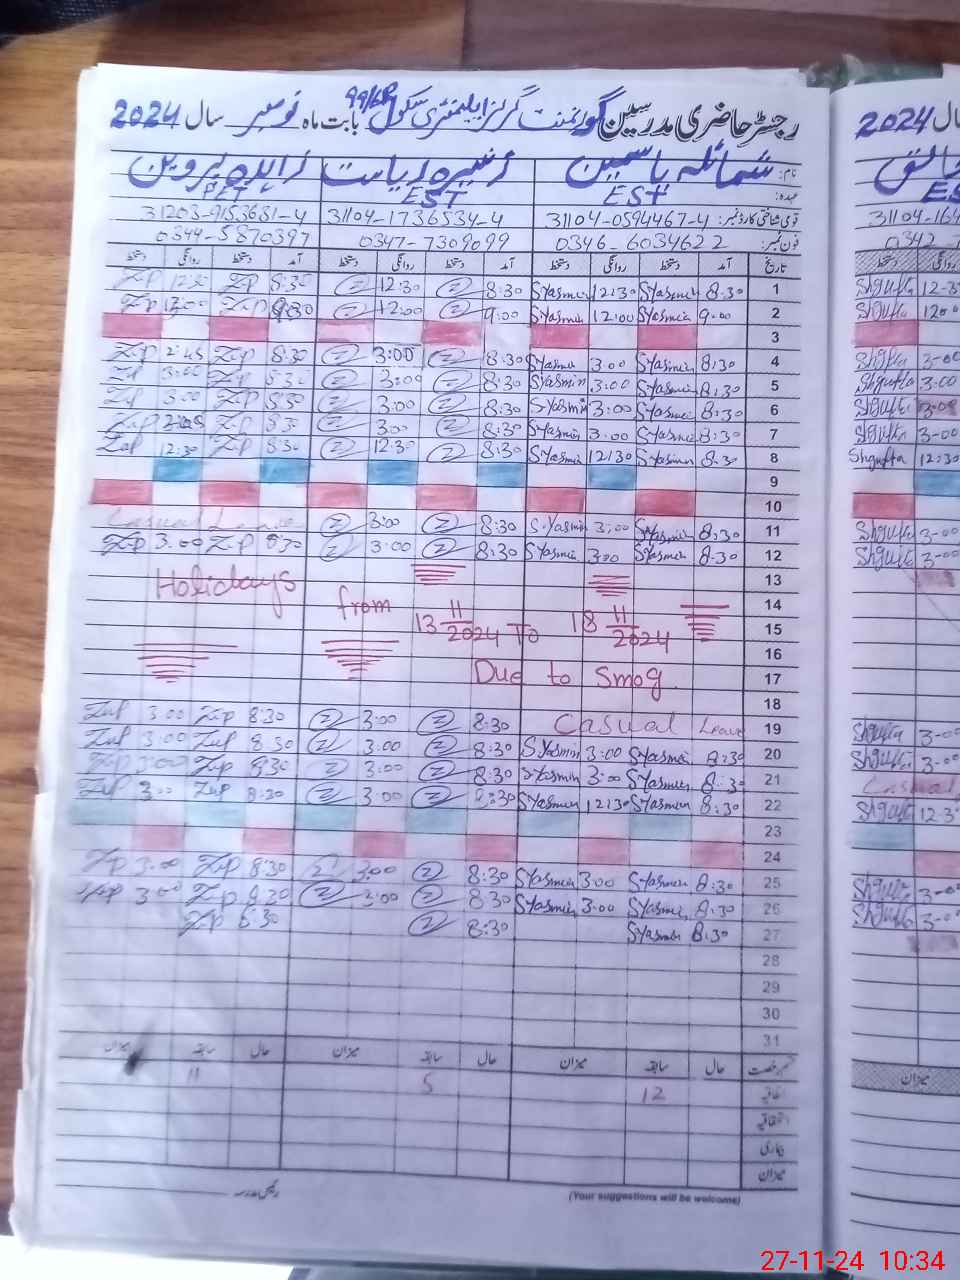 رجسٹر حاضری مدرسین گورنمنٹ گرلز ایلیمنٹری سکول 99/6R بابت ماہ نومبر سال 2024
نام: شمائلہ یاسمین زنیرہ ریاست زاہدہ پروین
عہدہ: EST EST PET
قومی شناختی کارڈ نمبر: 31104-0594467-4 31104-1736534-4 31203-9153681-4
فون نمبر: 0346-6034622 0347-7309099 0344-5870397
تاریخ آمد دستخط روانگی دستخط آمد دستخط روانگی دستخط آمد دستخط روانگی دستخط
1 8:30 SYasmin 12:30 SYasmin 8:30 Z 12:30 Z 8:30 Zip 12:30 Zip
2 9:00 SYasmin 12:00 SYasmin 9:00 Z 12:00 Z Zip Zip
3
4 8:30 SYasmin 3:00 SYasmin 8:30 Z 3:00 Z 8:30 Zip 2:45 Zip
5 8:30 SYasmin 3:00 SYasmin 8:30 Z 3:00 Z 8:30 Zip 3:00 Zip
6 8:30 SYasmin 3:00 SYasmin 8:30 Z 3:00 Z 8:30 Zip 3:00 Zip
7 8:30 SYasmin 3:00 SYasmin 8:30 Z 3:00 Z 8:30 Zip Zip
8 8:30 SYasmin 12:30 SYasmin 8:30 Z 12:30 Z 8:30 Zip 12:30 Zip
9
10
11 8:30 SYasmin 3:00 S.Yasmin 8:30 Z 3:00 Z Casual Leave
12 8:30 SYasmin 3:00 SYasmin 8:30 Z 3:00 Z 8:30 Zip 3:00 Zip
13
Holidays from 13 11/2024 To 18 11/2024
14
15
16
Due to Smog.
17
18
19 Casual Leave 8:30 Z 3:00 Z 8:30 Zip 3:00 Zip
20 8:30 SYasmin 3:00 SYasmin 8:30 Z 3:00 Z 8:30 Zip 3:00 Zip
21 8:30 SYasmin 3:00 SYasmin 8:30 Z 3:00 Z 8:30 Zip 3:00 Zip
22 8:30 SYasmin 12:30 SYasmin 8:30 Z 3:00 Z 8:30 Zip 3:00 Zip
23
24
25 8:30 SYasmin 3:00 SYasmin 8:30 Z 3:00 Z 8:30 Zip 3:00 Zip
26 8:30 SYasmin 3:00 SYasmin 8:30 Z 3:00 Z 8:30 Zip 3:00 Zip
27 8:30 SYasmin 8:30 Z 8:30 Zip
28
29
30
31
حال سابقہ میزان حال سابقہ میزان حال سابقہ میزان
12 5 11
بیماری
میزان
(Your suggestions will be welcome) رئیس مدرسہ
سال 2024
EST
31104-164
0342-7
دستخط روانگی
Shgufta 12-3
Shgufta 12-0
Shgufta 3-00
Shgufta 3-00
Shgufta
Shgufta 3-00
Shgufta 12:30
Shgufta 3-00
Shgufta 3-00
Shgufta 3-00
Shgufta 3-00
Casual
Shgufta 12-3
Shgufta 3-00
Shgufta 3-00
میزان
27-11-24 10:34